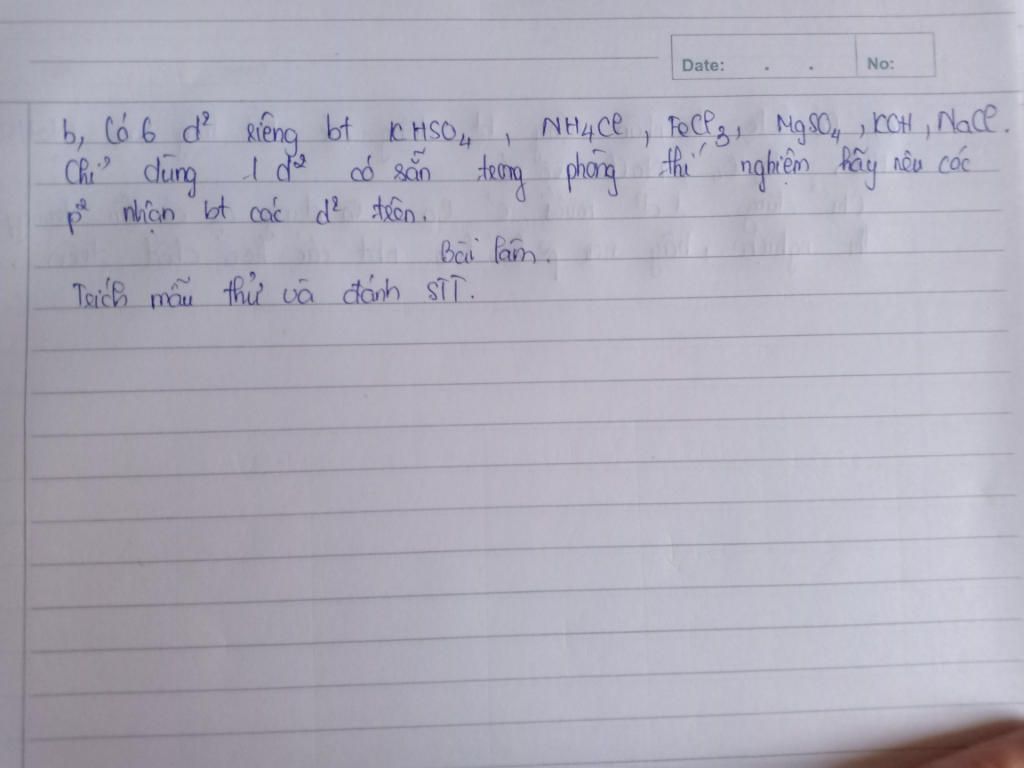 Date: . . No:
b, Có 6 d² riêng bt KHSO₄, NH₄Cl, FeCl₃, MgSO₄, KOH, NaCl.
Chỉ dùng 1 d² có sẵn trong phòng thí nghiệm hãy nêu các
p² nhận bt các d² trên.
Bài làm.
Trích mẫu thử và đánh STT.